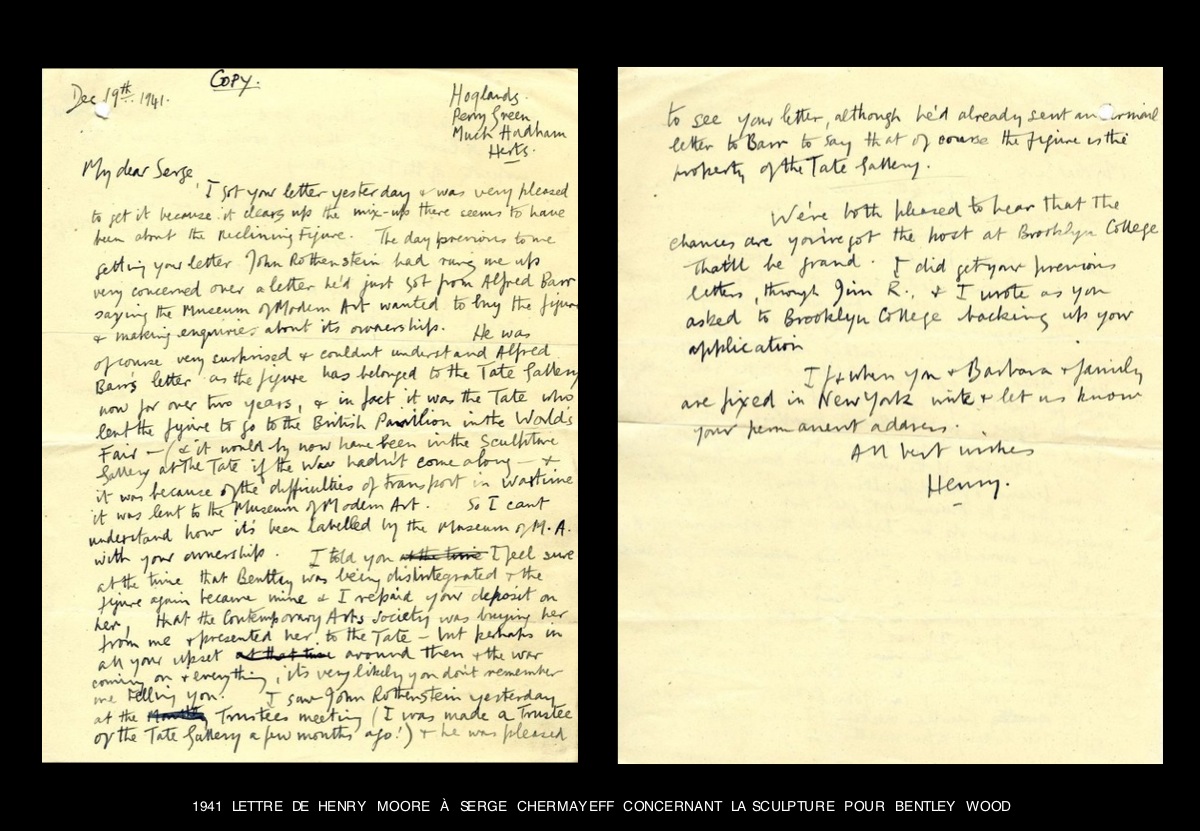 COPY.
Dec 19th 1941.
Hoglands.
Perry Green
Much Hadham
Herts.
My dear Serge
I got your letter yesterday & was very pleased
to get it because it clears up the mix-up there seems to have
been about the Reclining Figure. The day previous to me
getting your letter John Rothenstein had rung me up
very concerned over a letter he'd just got from Alfred Barr
saying the Museum of Modern Art wanted to buy the figure
& making enquiries about its ownership. He was
of course very surprised & couldnt understand Alfred
Barr's letter as the figure has belonged to the Tate Gallery
now for over two years, & in fact it was the Tate who
lent the figure to go to the British Pavilion in the World's
Fair – (& it would by now have been in the Sculpture
Gallery at the Tate if the War hadn't come along – &
it was because of the difficulties of transport in wartime
it was lent to the Museum of Modern Art. So I cant
understand how it's been labelled by the Museum of M.A.
with your ownership. I told you at the time I feel sure
at the time that Bentley was being disintegrated & the
figure again became mine & I repaid your deposit on
her, that the Contemporary Arts Society was buying her
from me & presented her to the Tate – but perhaps in
all your upset at that time around then & the war
coming on & everything, it's very likely you don't remember
me telling you. I saw John Rothenstein yesterday
at the Trustees meeting (I was made a Trustee
of the Tate Gallery a few months ago!) & he was pleased
to see your letter, although he'd already sent an airmail
letter to Barr to say that of course the figure is the
property of the Tate Gallery.
We're both pleased to hear that the
chances are you've got the post at Brooklyn College
that'll be grand. I did get your previous
letters, through Jim R., & I wrote as you
asked to Brooklyn College backing up your
application
If & when you & Barbara & family
are fixed in New York write & let us know
your permanent address.
All best wishes
Henry.
1941 LETTRE DE HENRY MOORE À SERGE CHERMAYEFF CONCERNANT LA SCULPTURE POUR BENTLEY WOOD